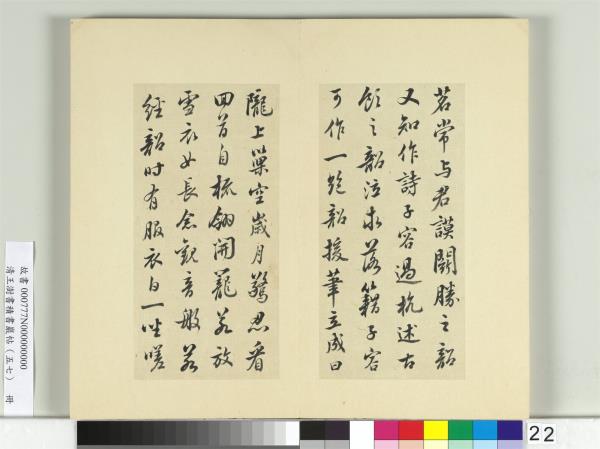 茗常与君謨鬪勝之韶
又知作詩子容過杭述古
飲之韶泣求落籍子容
可作一絶韶援筆立成曰
隴上巢空歲月驚忍看
回首自梳翎開籠若放
雪衣女長念觀音般若
經韶时有服衣白一坐嗟
故書000777N000000000
清王澍書積書巖帖（五七） 冊
22